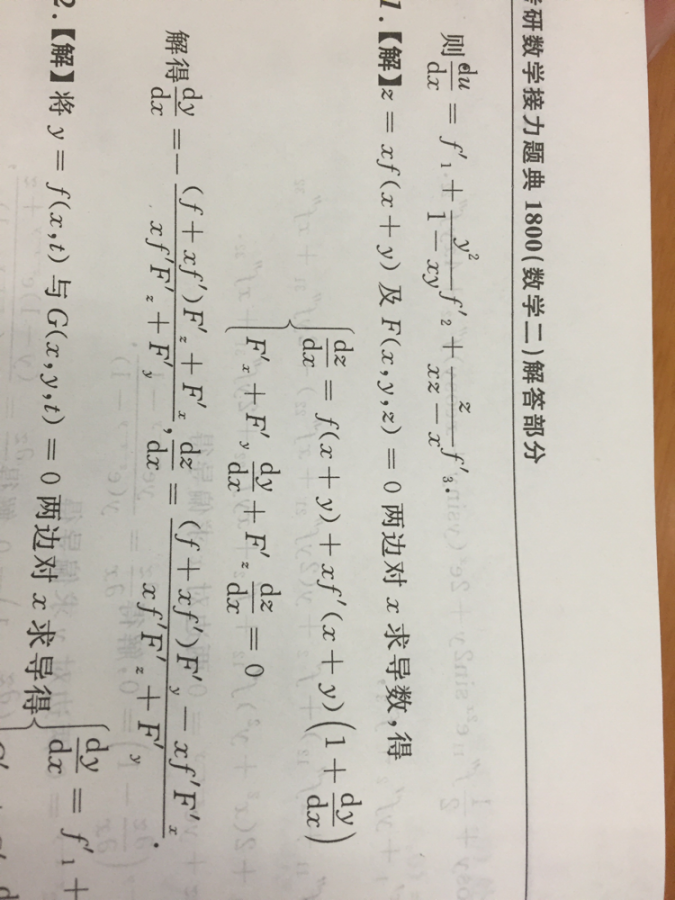 考研数学接力题典 1800(数学二)解答部分
则 du/dx = f′₁ + y²/(1 − xy) f′₂ + z/(xz − x) f′₃.
1.【解】z = xf(x + y) 及 F(x,y,z) = 0 两边对 x 求导数,得
{ dz/dx = f(x + y) + xf′(x + y)(1 + dy/dx)
F′ₓ + F′ᵧ dy/dx + F′_z dz/dx = 0
解得 dy/dx = − ((f + xf′)F′_z + F′ₓ)/(xf′F′_z + F′ᵧ), dz/dx = ((f + xf′)F′ᵧ − xf′F′ₓ)/(xf′F′_z + F′ᵧ).
2.【解】将 y = f(x,t) 与 G(x,y,t) = 0 两边对 x 求导得 { dy/dx = f′₁ +